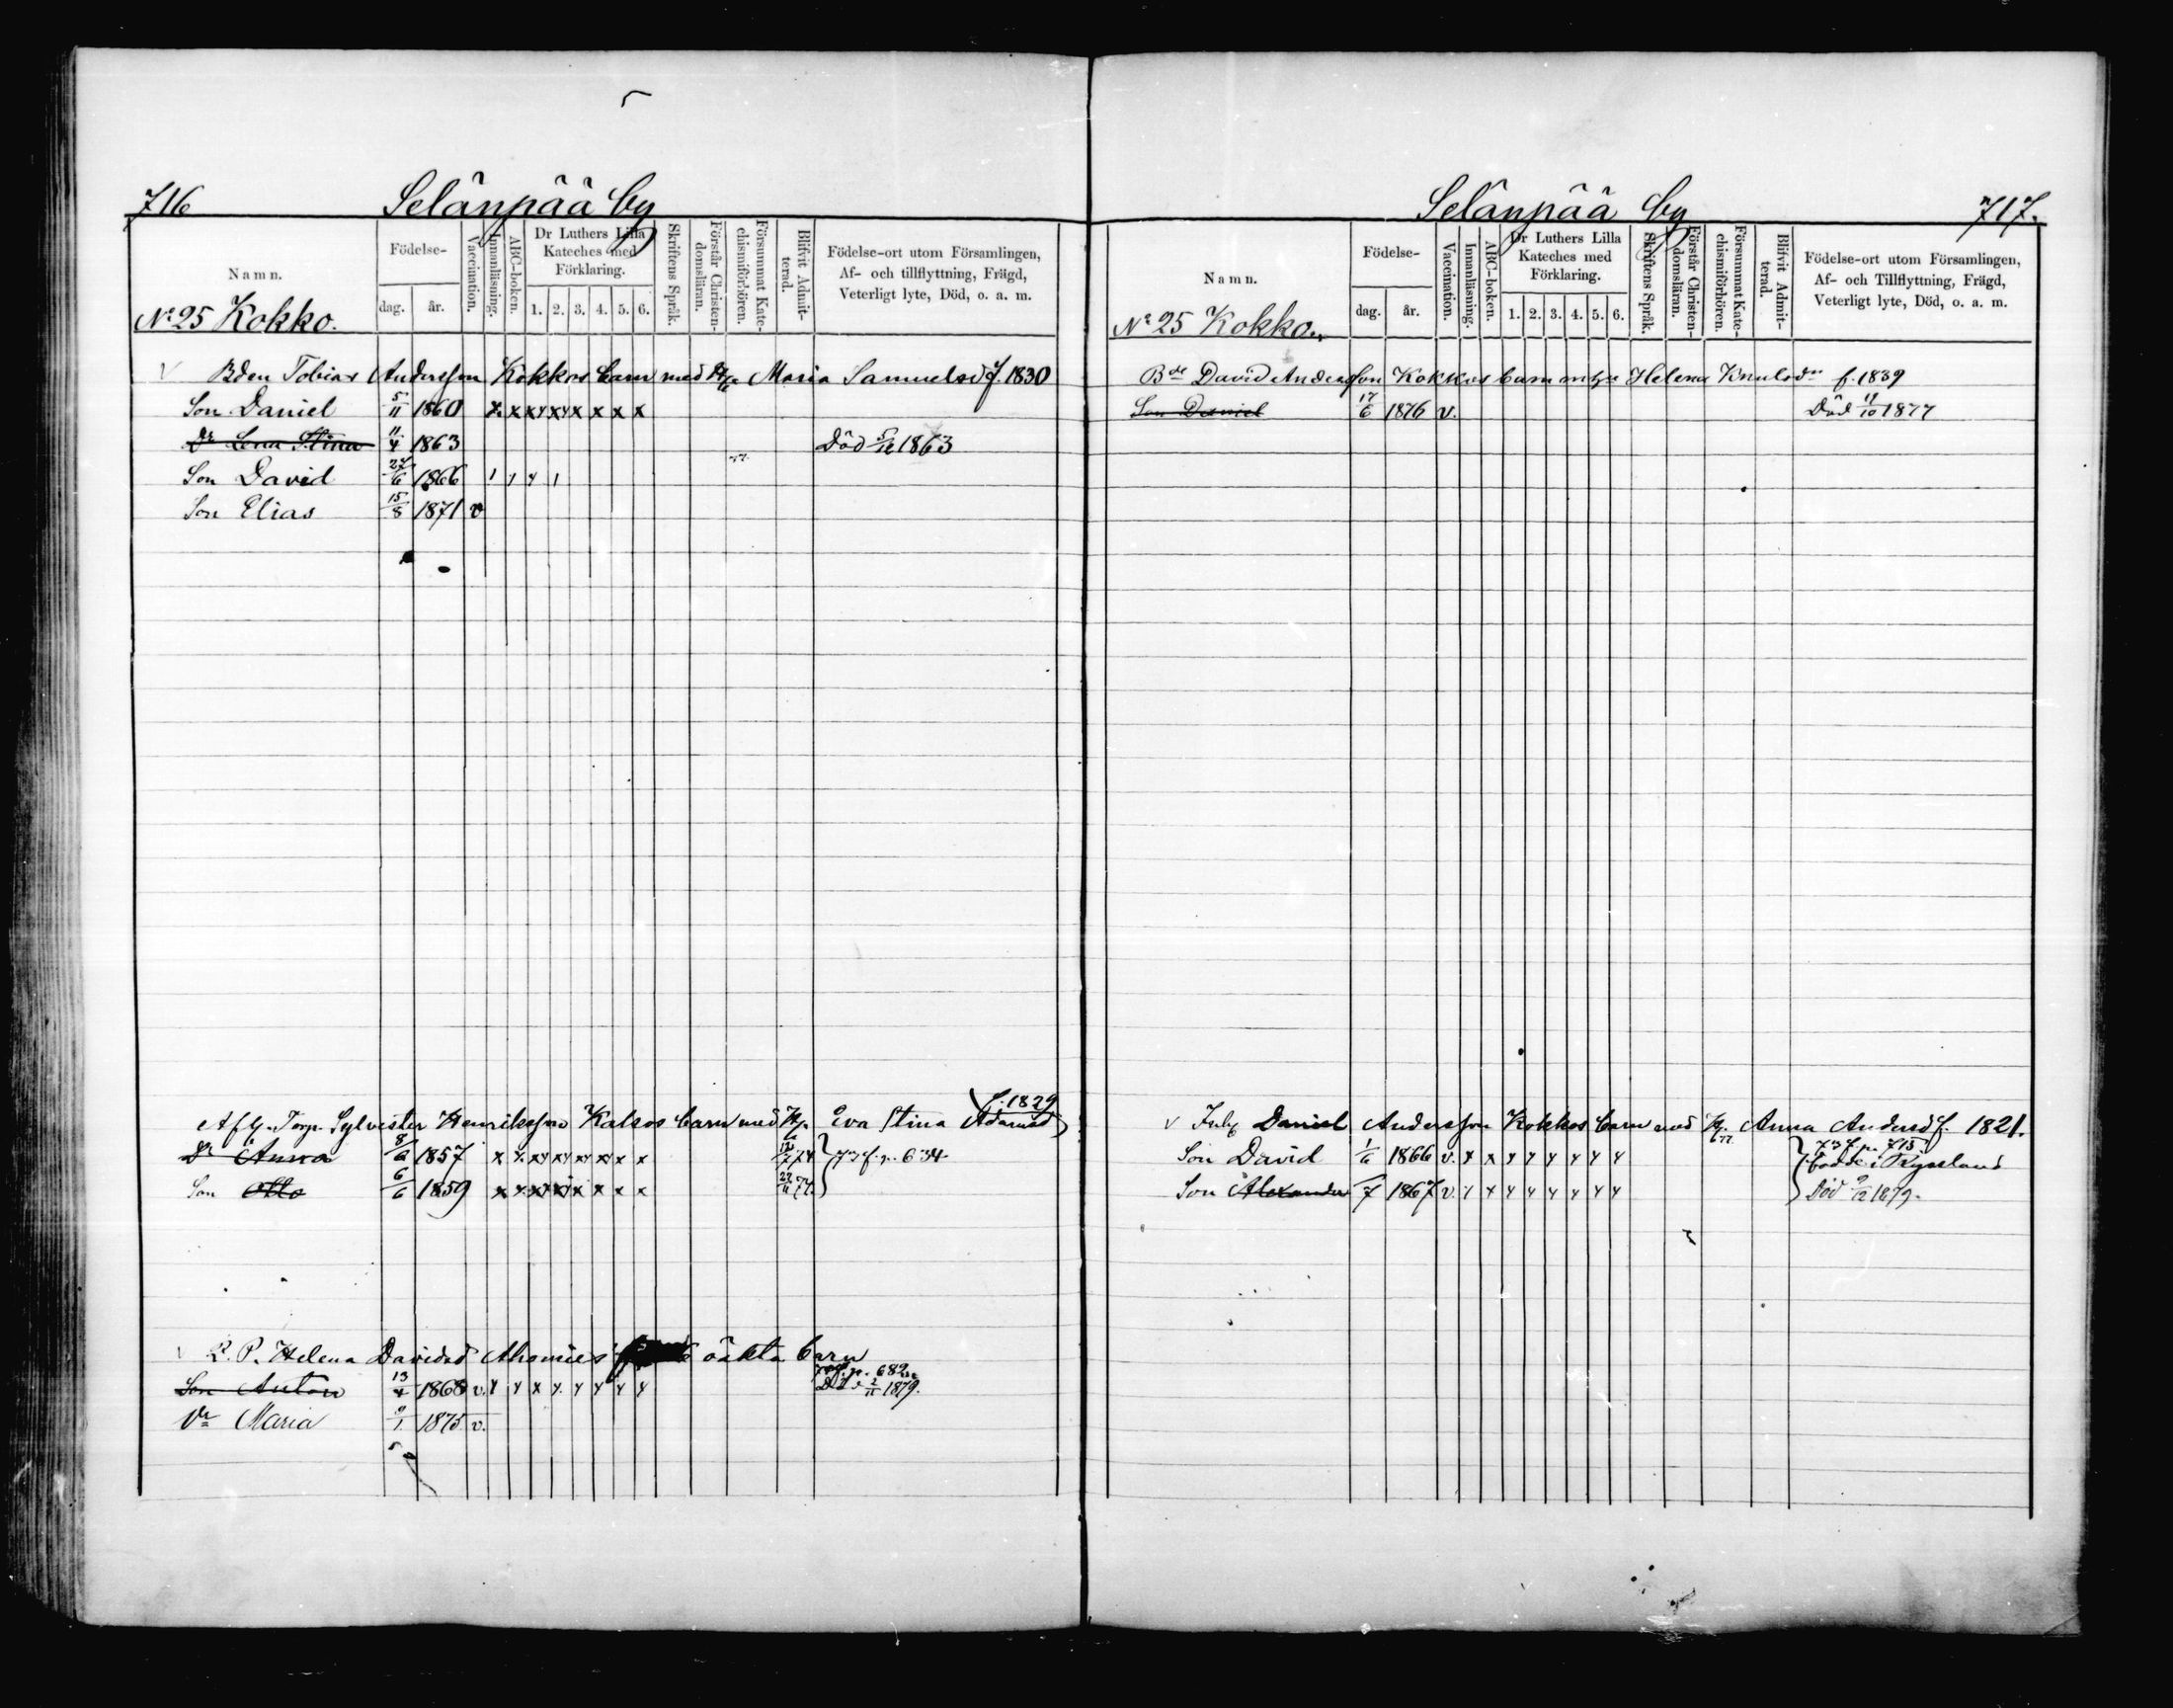 716
Selänpää by
Namn.
Födelse-
dag.
år.
Vaccination.
Innanläsning.
ABC-boken.
Dr Luthers Lilla
Kateches med
Förklaring.
1. 2. 3. 4. 5. 6.
Skriftens Språk.
Förstår Christen-
domsläran.
Försummat Kate-
chismiförhören.
Blifvit Admit-
terad.
Födelse-ort utom Församlingen,
Af- och tillflyttning, Frägd,
Veterligt lyte, Död, o. a. m.
No 25 Kokko.
Bden Tobias Andersson Kokkos barn med Hu Maria Samuelsd f. 1830
Son Daniel 5/11 1860 x x x x x x x x
Dr Lena Stina 11/4 1863 Död 5/12 1863
Son David 27/6 1866
Son Elias 15/8 1871 v
f. 1829
Afl. Torp. Sylvester Henriksson Kalsos barn med Hu Eva Stina Adamsd
Dr Anna 8/6 1857 x x x x x x x x 74 f. p. 634
Son Otto 6/6 1859 x x x x x x x x
L. P. Helena Davidsd Ahomies oäkta barn
Son Anton 13/4 1868 v. f. p. 682
Död 2/11 1879.
Dr Maria 9/1 1875 v.
717.
Selänpää by
Namn.
Födelse-
dag.
år.
Vaccination.
Innanläsning.
ABC-boken.
Dr Luthers Lilla
Kateches med
Förklaring.
1. 2. 3. 4. 5. 6.
Skriftens Språk.
Förstår Christen-
domsläran.
Försummat Kate-
chismiförhören.
Blifvit Admit-
terad.
Födelse-ort utom Församlingen,
Af- och Tillflyttning, Frägd,
Veterligt lyte, Död, o. a. m.
No 25 Kokko.
Bde David Andersson Kokkos barn m hu Helena Knutsdr f. 1839
Son Daniel 17/6 1876 v. Död 11/10 1877
v Inh Daniel Andersson Kokkos barn med Hu Anna Andersd f. 1821.
f. p. 715
Son David 1/6 1866 v. födde i Ryssland
Son Alexander 7 1867 v. Död 9/12 1879.